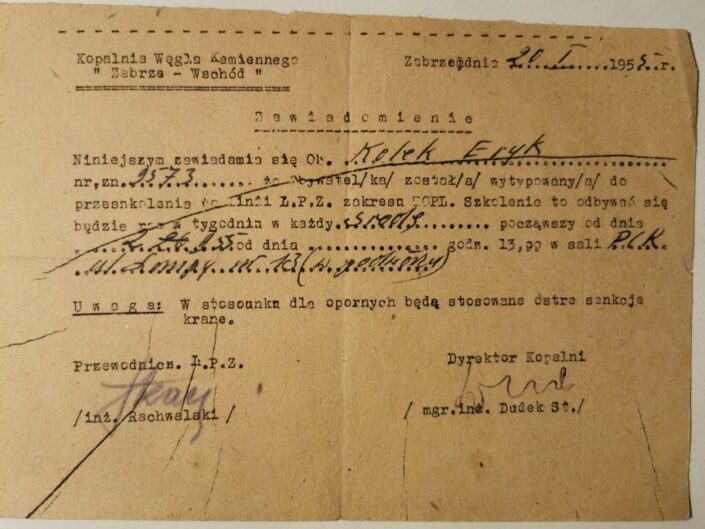 Kopalnia Węgla Kamiennego
" Zabrze - Wschód "
Zabrze,dnia 20 I 1955 r.
Zawiadomienie
Niniejszym zawiadamia się Ob. Kolek Eryk
nr,zn. 9573 że Obywatel/ka/ został/a/ wytypowany/a/ do
przeszkolenia linii L.P.Z. zakresu TOPL. Szkolenie to odbywać się
będzie raz w tygodniu w każdy środę począwszy od dnia
2 55 od dnia godz. 13,00 w sali P.C.K.
ul. Lompy nr 13 (w podwórzu)
Uwaga: W stosunku dla opornych będą stosowane ostre sankcje
krane.
Przewodnicz. L.P.Z.
Dyrektor Kopalni
/inż. Rachwalski /
/ mgr.inż. Dudek St./